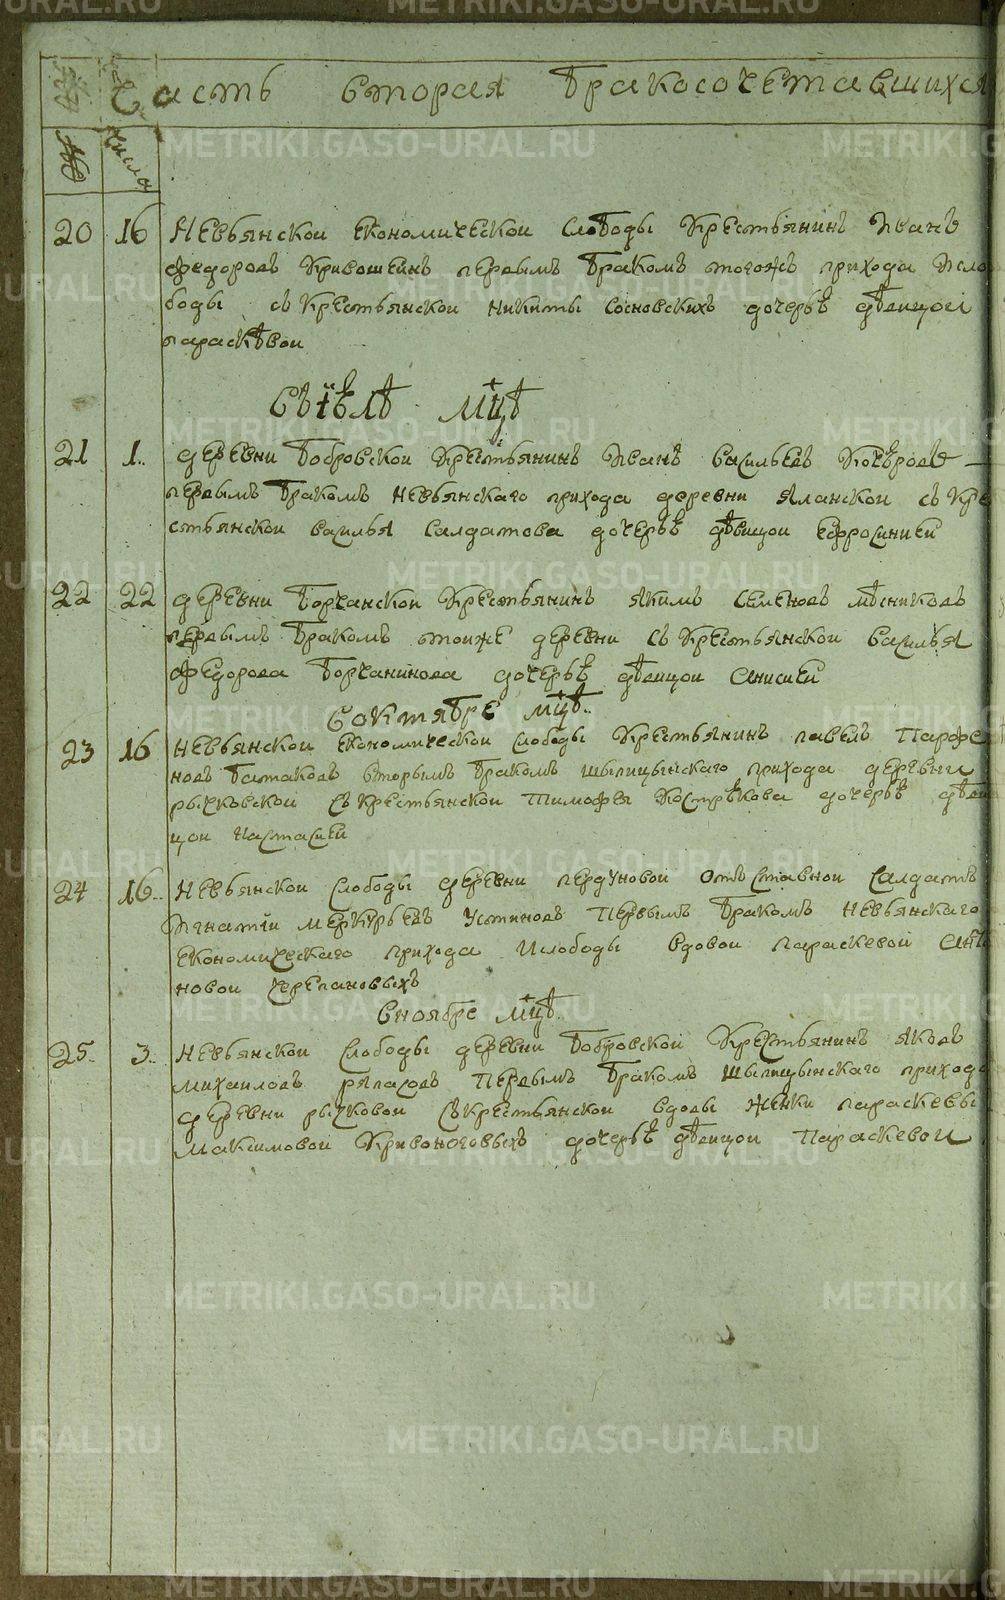 Часть вторая бракосочетавшихся
№
Числа
20 16 Невьянской економической слободы крестьянинъ Иванъ
Федоровъ Кривошеинъ первымъ бракомъ тогожъ прихода исло
боды съ крестьянской Никиты Сосновскихъ дочерьѣ дѣвицои
параскѣвои
Въ іюлѣ мцѣ
21 1.. деревни Бобровской крестьянинъ Иванъ Васильевъ
первымъ бракомъ Невьянскаго прихода деревни Яланской съ кре
стьянской Василья Салдатова дочерьѣ дѣвицои Ефросиниеи
22 22 деревни Борчанской крестьянинъ Якимъ Семеновъ Мясниковъ
первымъ бракомъ тоиже деревни съ крестьянской Василья
Федорова Борчанинова дочерьѣ дѣвицои Анисиеи
Воктябре мцѣ..
23 16 Невьянской економической слободы крестьянинъ павелъ Парфе
новъ Батаковъ вторымъ бракомъ Шылицынскаго прихода деревни
рычковской съ крестьянской Тимофея Кострѣкова дочерьѣ дѣви
цои Настасиеи
24 16.. Невьянской слободы деревни пердуновой отъставнои салдатъ
Игнатіи Меркурьевъ Устиновъ Первымъ бракомъ Невьянскаго
економическаго прихода ислободы вдовои параскевой
новои Черепановыхъ
Вноябре мцѣ..
25.. 3.. Невьянской слободы деревни Бобровской крестьянинъ Яковъ
михаиловъ Первымъ бракомъ Шылицынскаго прихода
деревни рычковой съ крестьянской вдовы женки параскевы
Максимовой Кривоноговыхъ дочерьѣ дѣвицои Параскевои
METRIKI.GASO-URAL.RU